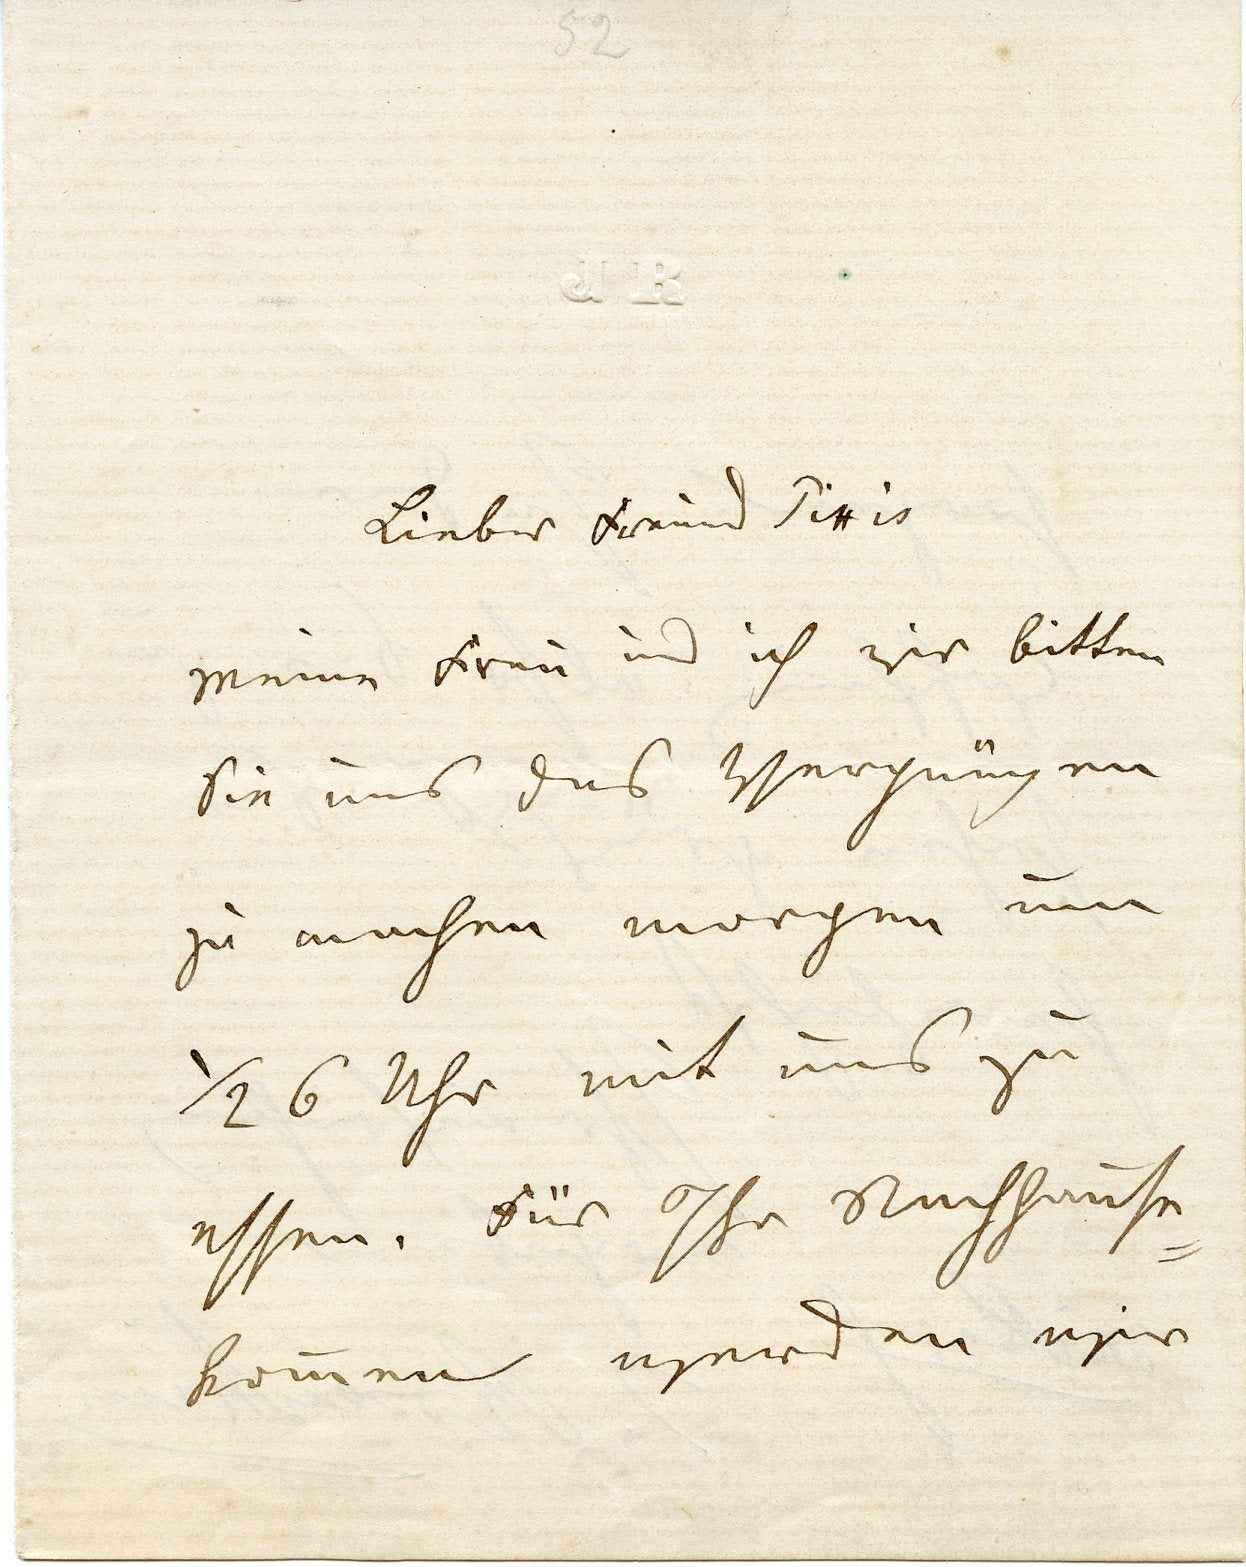 52
JR
Lieber Freund
meine Frau und ich wir bitten
Sie uns das Vergnügen
zu machen morgen um
1/2 6 Uhr mit uns zu
essen. Für Ihr Nachhause=
kommen werden wir